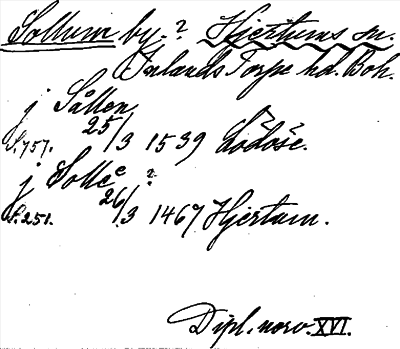 Sollum by. ? Hjertums sn.
Inlands Torpe hd. Boh.
j Sållen
S. 757. 25/3 1539 Lödöse.
j Sollee ?
S. 251. 26/3 1467 Hjertum.
Dipl. norv. XVI.